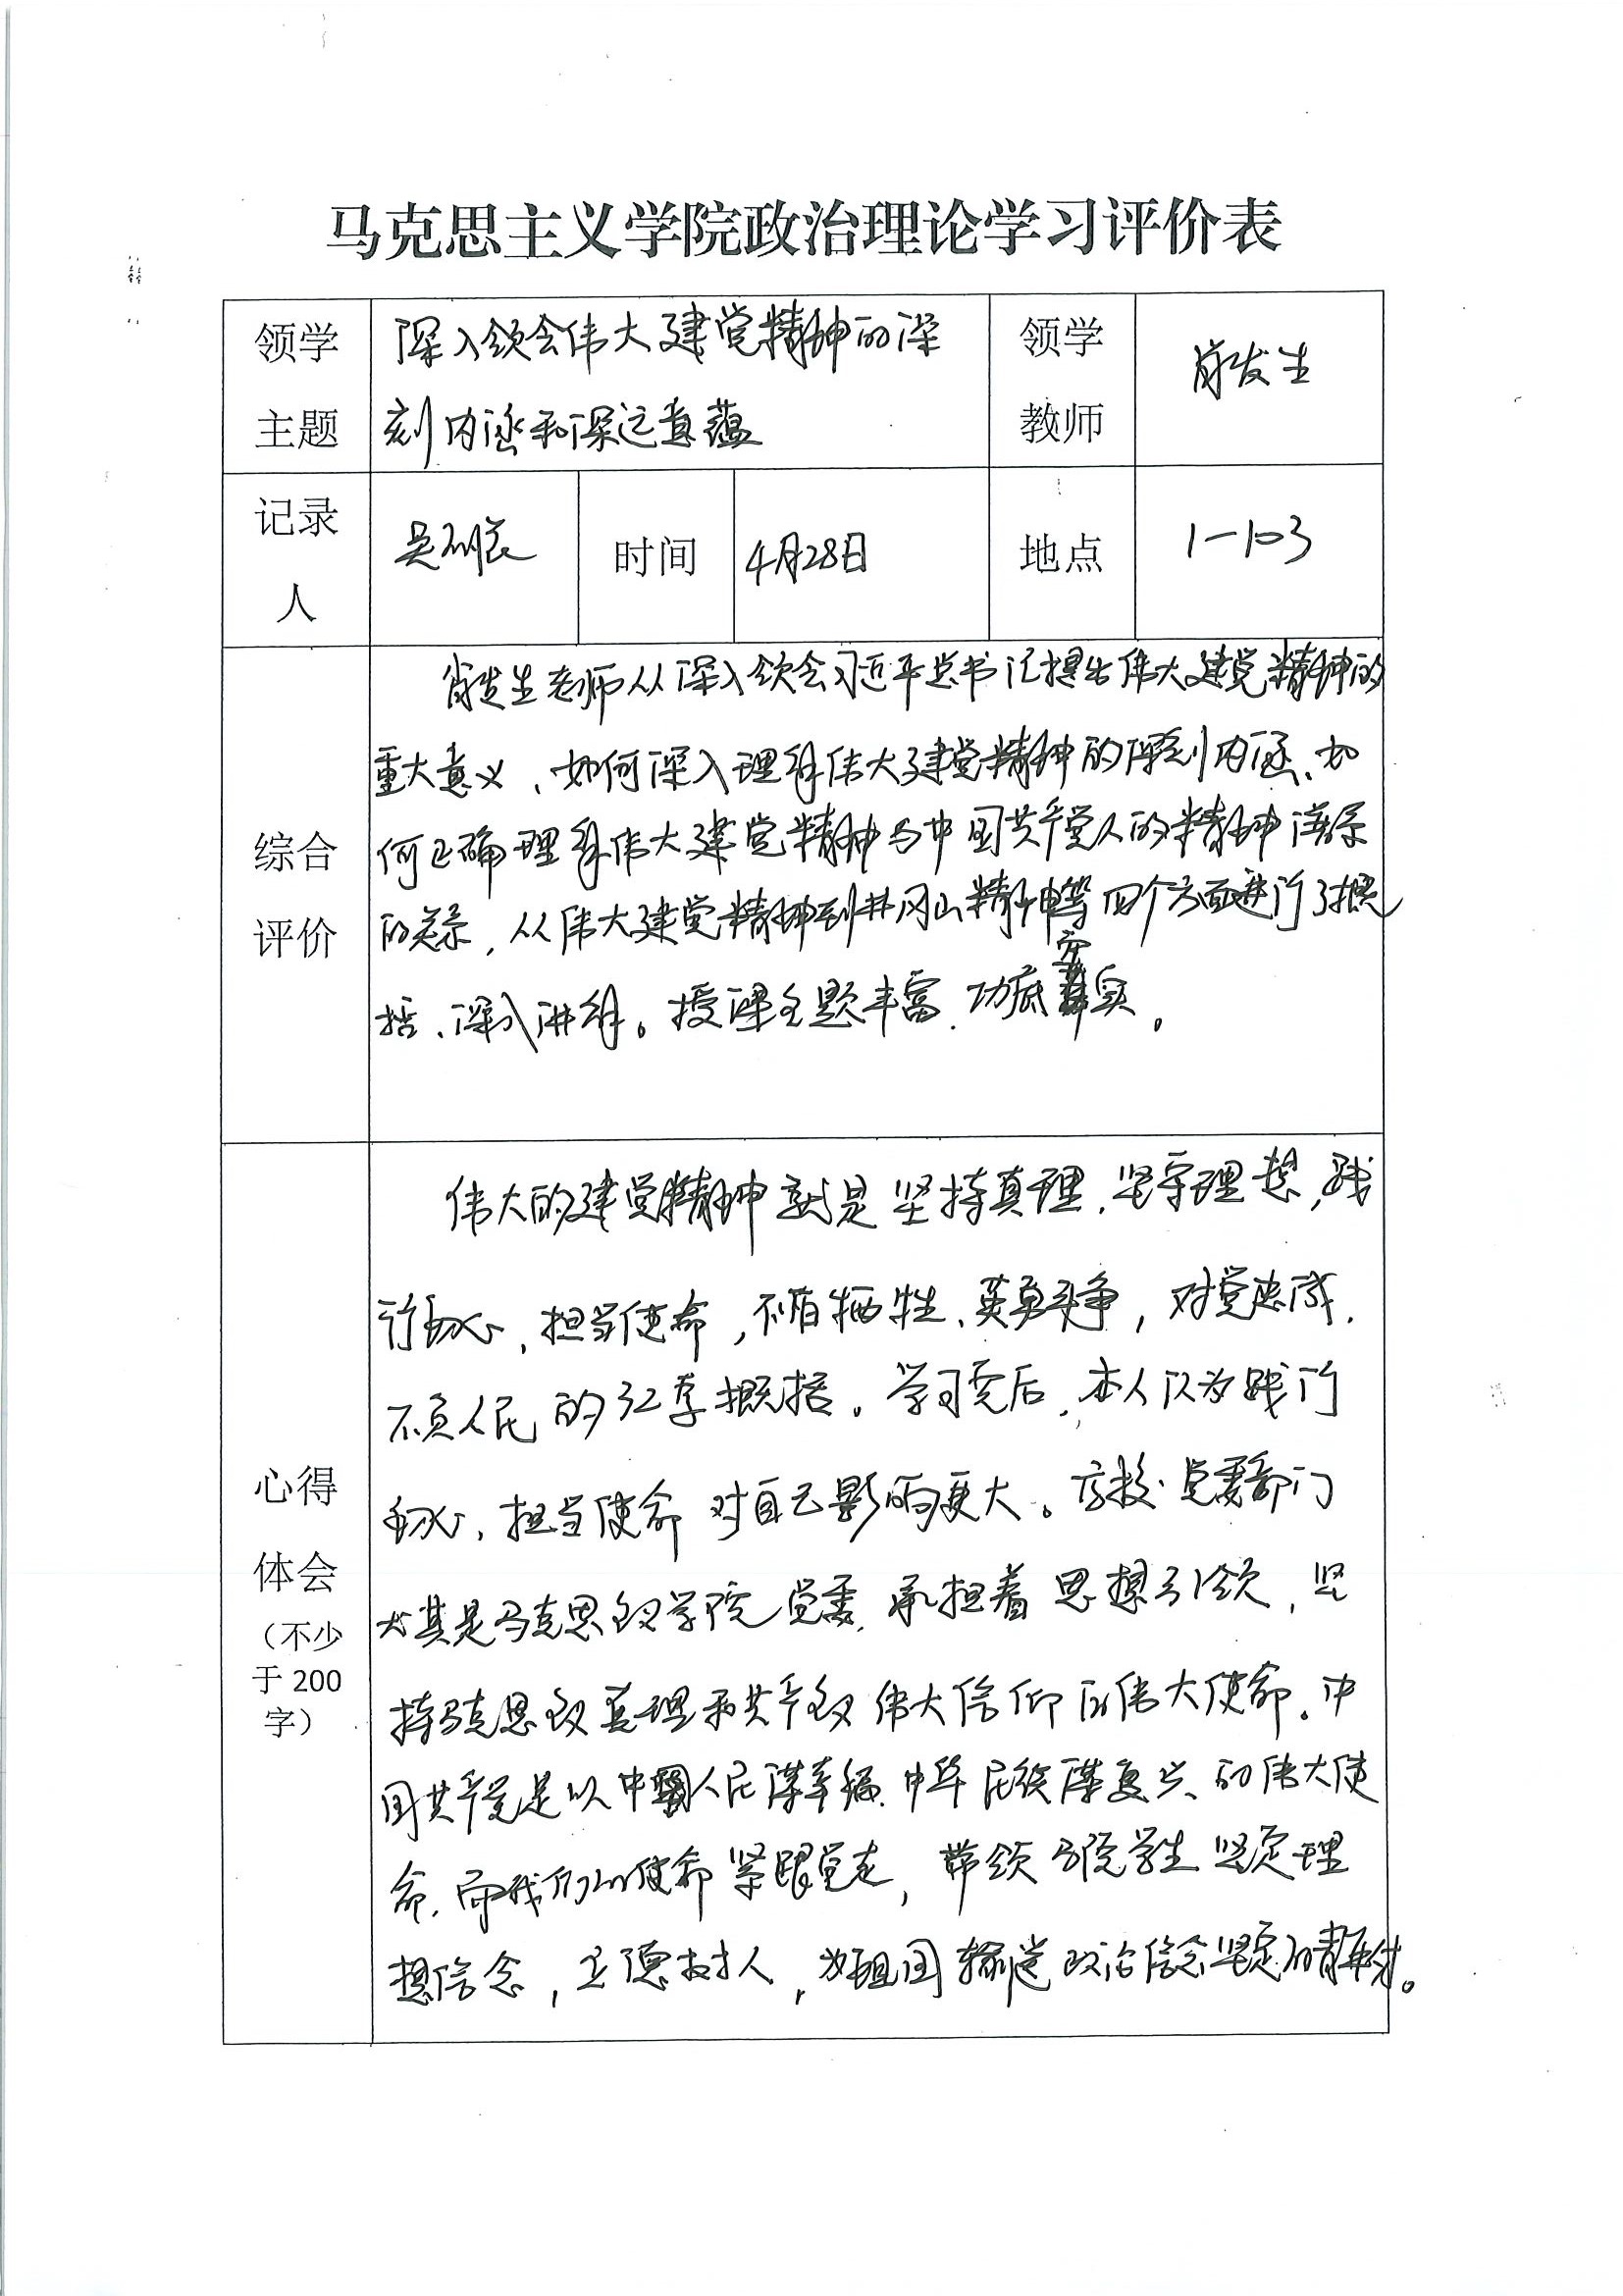 马克思主义学院政治理论学习评价表
领学主题
深入领会伟大建党精神的深
刻内涵和深远意蕴
领学教师
肖发生
记录人
时间
4月28日
地点
1-103
综合评价
肖发生老师从深入领会习近平总书记提出伟大建党精神的
重大意义、如何深入理解伟大建党精神的深刻内涵、如
何正确理解伟大建党精神与中国共产党人的精神谱系
的关系,从伟大建党精神到井冈山精神等四个方面进行了概
括、深入讲解。授课主题丰富、功底夯实。
心得体会
(不少于200字)
伟大的建党精神就是坚持真理、坚守理想,践
行初心、担当使命,不怕牺牲、英勇斗争,对党忠诚、
不负人民的32字概括。学习完后,本人认为践行
初心、担当使命对自己影响更大。高校党委部门
尤其是马克思主义学院党委,承担着思想引领,坚
持马克思主义真理和共产主义伟大信仰的伟大使命。中
国共产党是以中国人民谋幸福、中华民族谋复兴、的伟大使
命,而我们的使命紧跟党走,带领马院学生坚定理
想信念,立德树人,为祖国输送政治信念坚定的青年才。